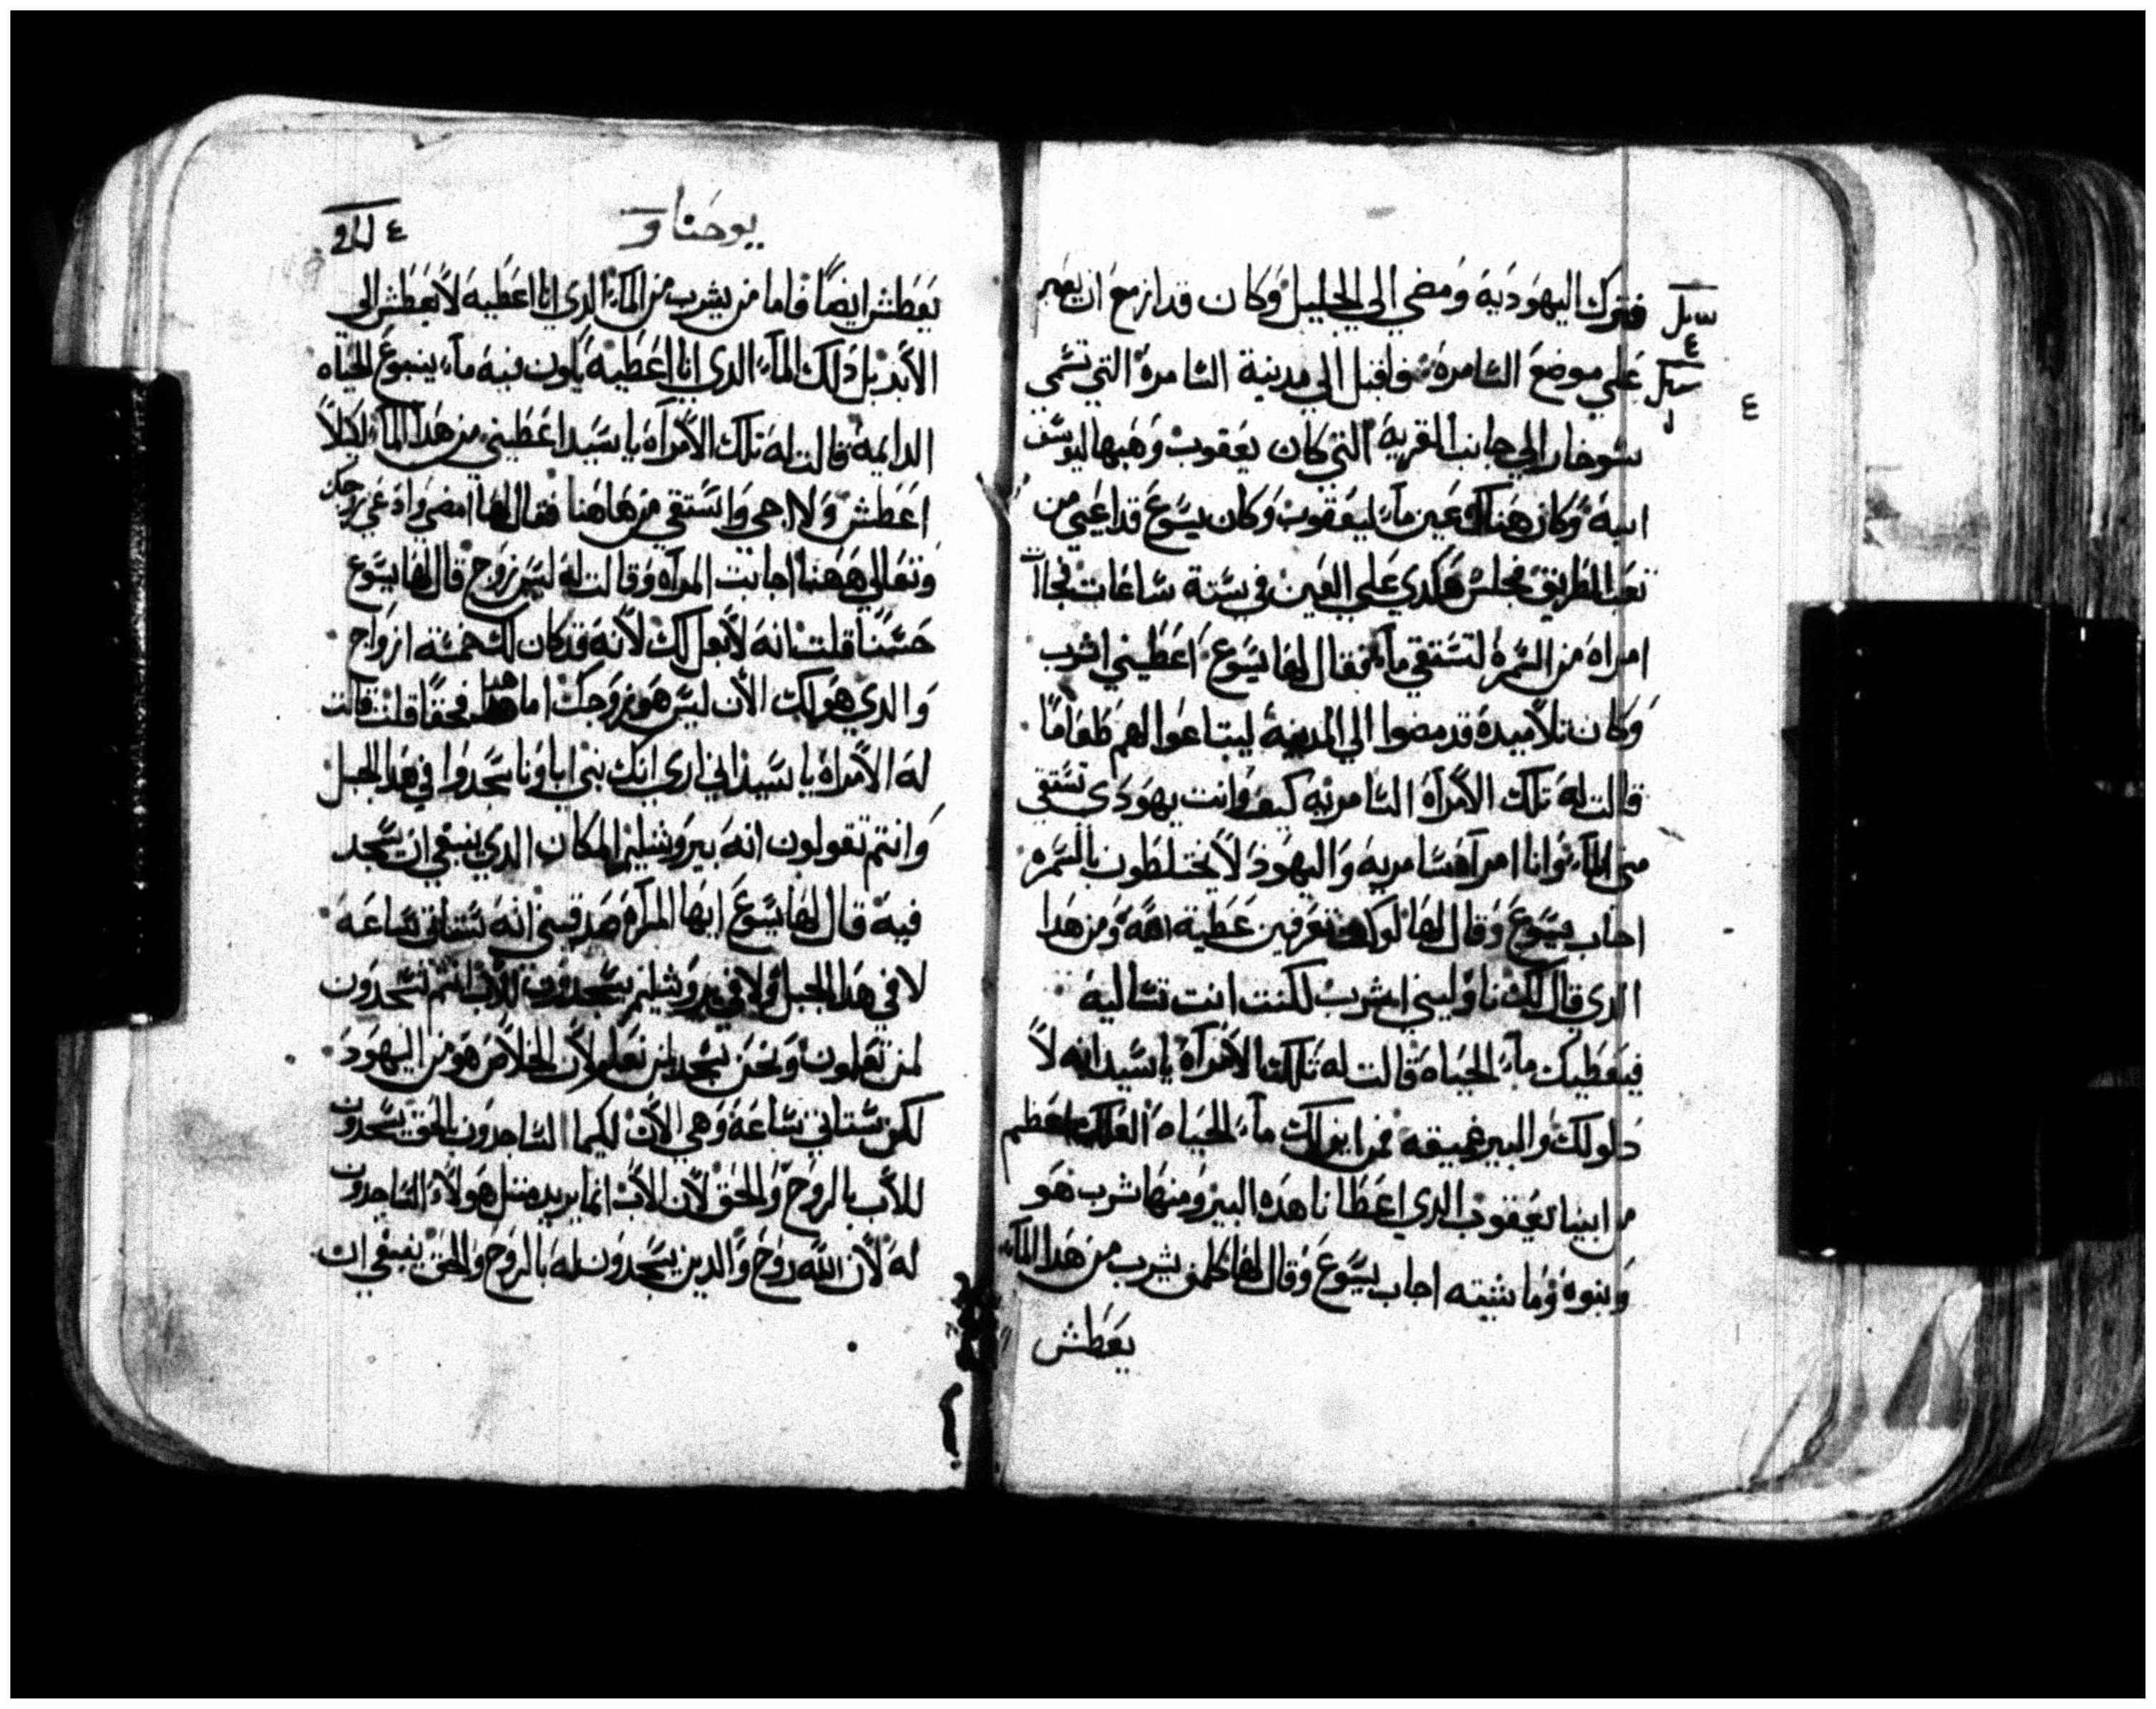 فترك اليهودية ومضي الي الجليل وكان قد ازمع ان يعبر
علي موضع السامرة فاقبل الي مدينة السامرة التي تسمي
سوخار الي جانب القرية التي كان يعقوب وهبها ليوسف
ابنه وكان هناك عين ماء ليعقوب وكان يسوع قد اعيي من
تعب الطريق فجلس هكدي علي العين في ستة ساعات فجاات
امراه من السمرة لتستقي ماء فقال لها يسوع اعطيني اشرب
وكان تلاميده قد مضوا الي المدينة ليبتاعوا لهم طعاما
قالت له تلك الامراه السامريه كيف وانت يهودي تستقي
مني الماء وانا امراه سامريه واليهود لا يختلطون بالسمره
اجاب يسوع وقال لها لو كنتي تعرفين عطية الله ومن هدا
الدي قال لك ناوليني اشرب لكنت انت تساليه
فيعطيك ماء الحياه قالت له تلك الامراه يا سيد انه لا
دلو لك والبير عميقه فمن اين لك ماء الحياه العلك اعظم
من ابينا يعقوب الدي اعطانا هده البير ومنها شرب هو
وبنوه وماشيته اجاب يسوع وقال لها كلمن يشرب من هدا الماء
يعطش
٤
يوحنا
٤
يعطش ايضا فاما من يشرب من الماء الدي انا اعطيه لا يعطش الي
الابد بل دلك الماء الدي انا اعطيه يكون فيه ماء ينبوع الحياه
الدايمه قالت له تلك الامراه يا سيد اعطيني من هدا الماء لكيلا
اعطش ولا اجي واستقي من هاهنا فقال لها امضي وادعي زوجك
وتعالي ههنا اجابت المراه وقالت له ليس زوج قال لها يسوع
حسنا قلت انه لا بعل لك لانه قد كان لك خمسة ازواج
والدي هو لك الان ليس هو زوجك اما هدا فحقا قلت قالت
له الامراه يا سيد اني اري انك نبي اباونا سجدوا في هدا الجبل
وانتم تقولون انه بيروشليم المكان الدي ينبغي ان يسجد
فيه قال لها يسوع ايها المراه صدقيني انه ستاتي ساعه
لا في هدا الجبل ولا في يروشليم يسجدون للاب انتم تسجدون
لمن تعلمون ونحن نسجد لمن نعلم لان الخلاص هو من اليهود
لكن ستاتي ساعة وهي الان لكيما الساجدون بالحق يسجدون
للاب بالروح والحق لان الاب انما يريد مثل هولاء الساجدون
له لان الله روح والدين يسجدون له بالروح والحق ينبغي ان